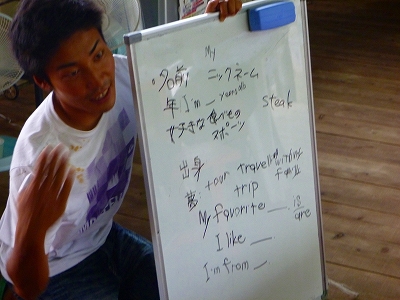 My
名前 ニックネーム
年 I'm __ years old
好きな食べもの steak
スポーツ
出身
夢: tour traveling within
trip
My favorite __ is
are
I like __
I'm from __